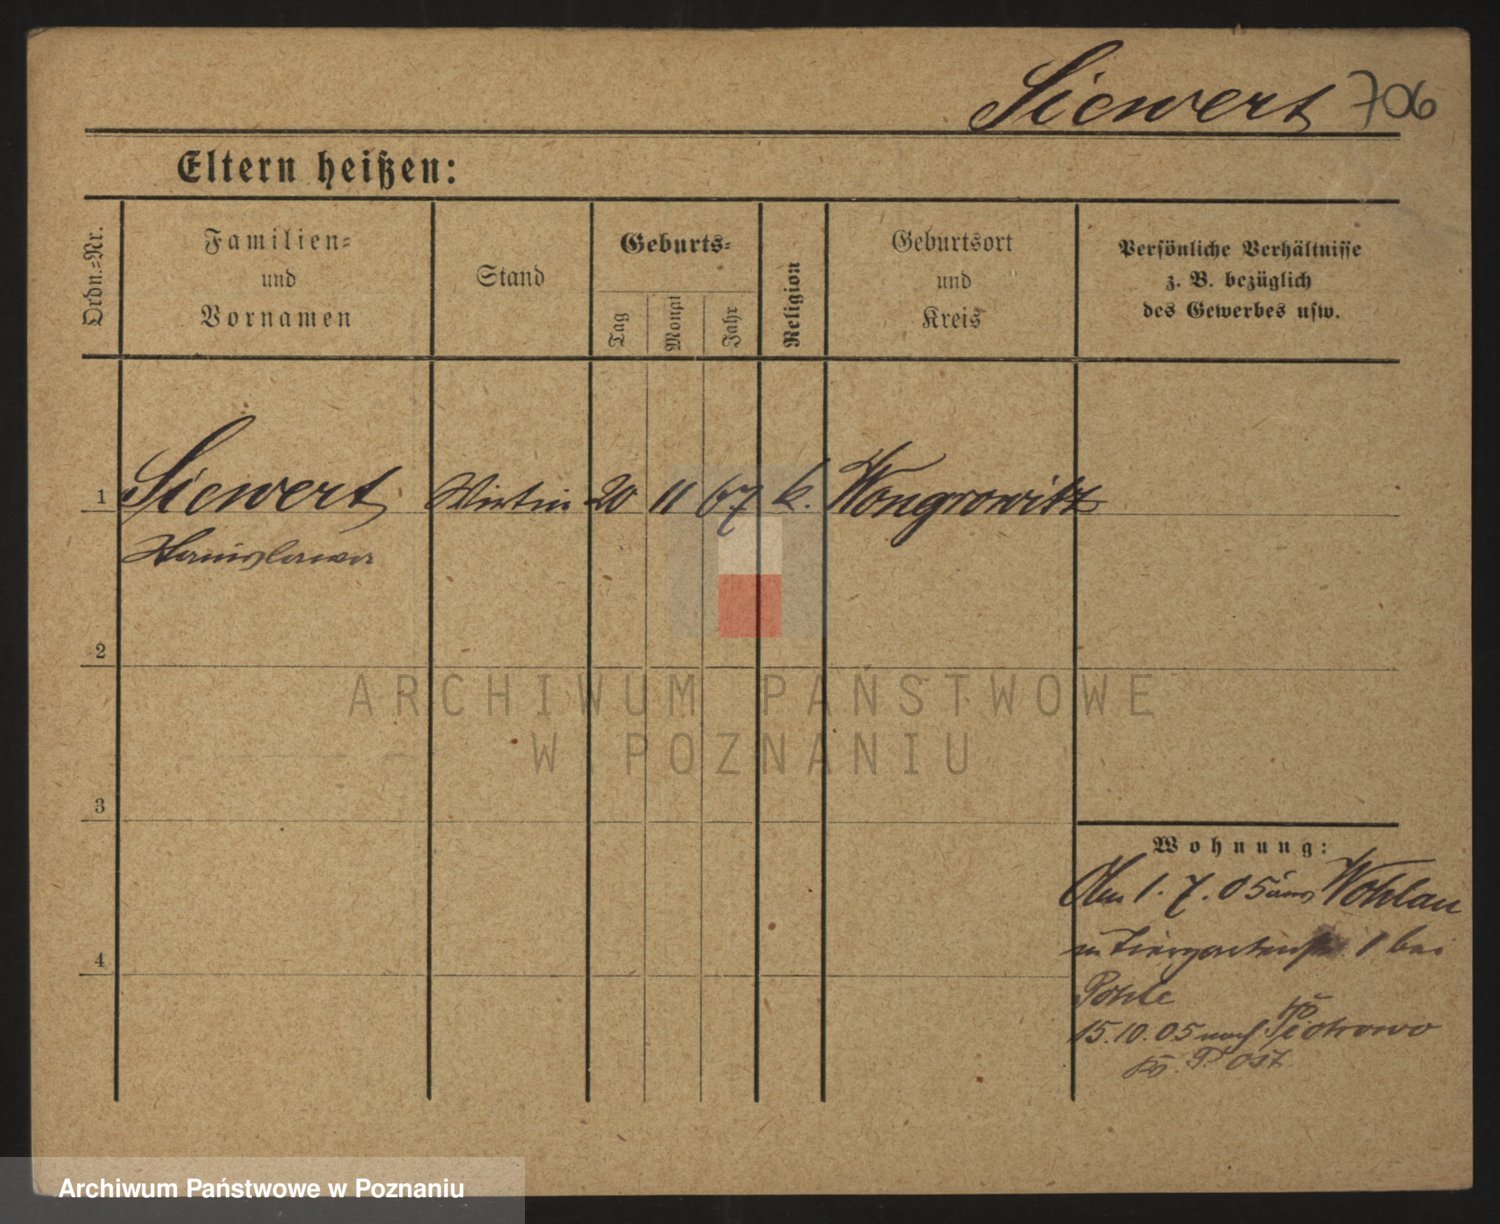 Siewert 706
Eltern heißen:
Ordn.-Nr.
Familien-
und
Vornamen
Stand
Geburts-
Tag
Monat
Jahr
Religion
Geburtsort
und
Kreis
Persönliche Verhältnisse
z. B. bezüglich
des Gewerbes usw.
1 Siewert Wirtin 20 11 67 k. Wongrowitz
Stanislawa
2
3
4
Wohnung:
1. 7. 05 aus Wohlau
Tiergartenstr. 1 bei
Pohle
15.10.05 nach Piotrowo
Kr. P. Ost
ARCHIWUM PAŃSTWOWE
W POZNANIU
Archiwum Państwowe w Poznaniu